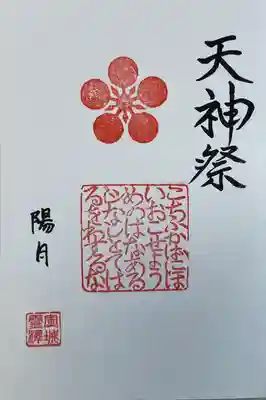 天神祭
こちふかばにほ
いおこせようめ
のはなある
じなしとては
るをわするな
陽月